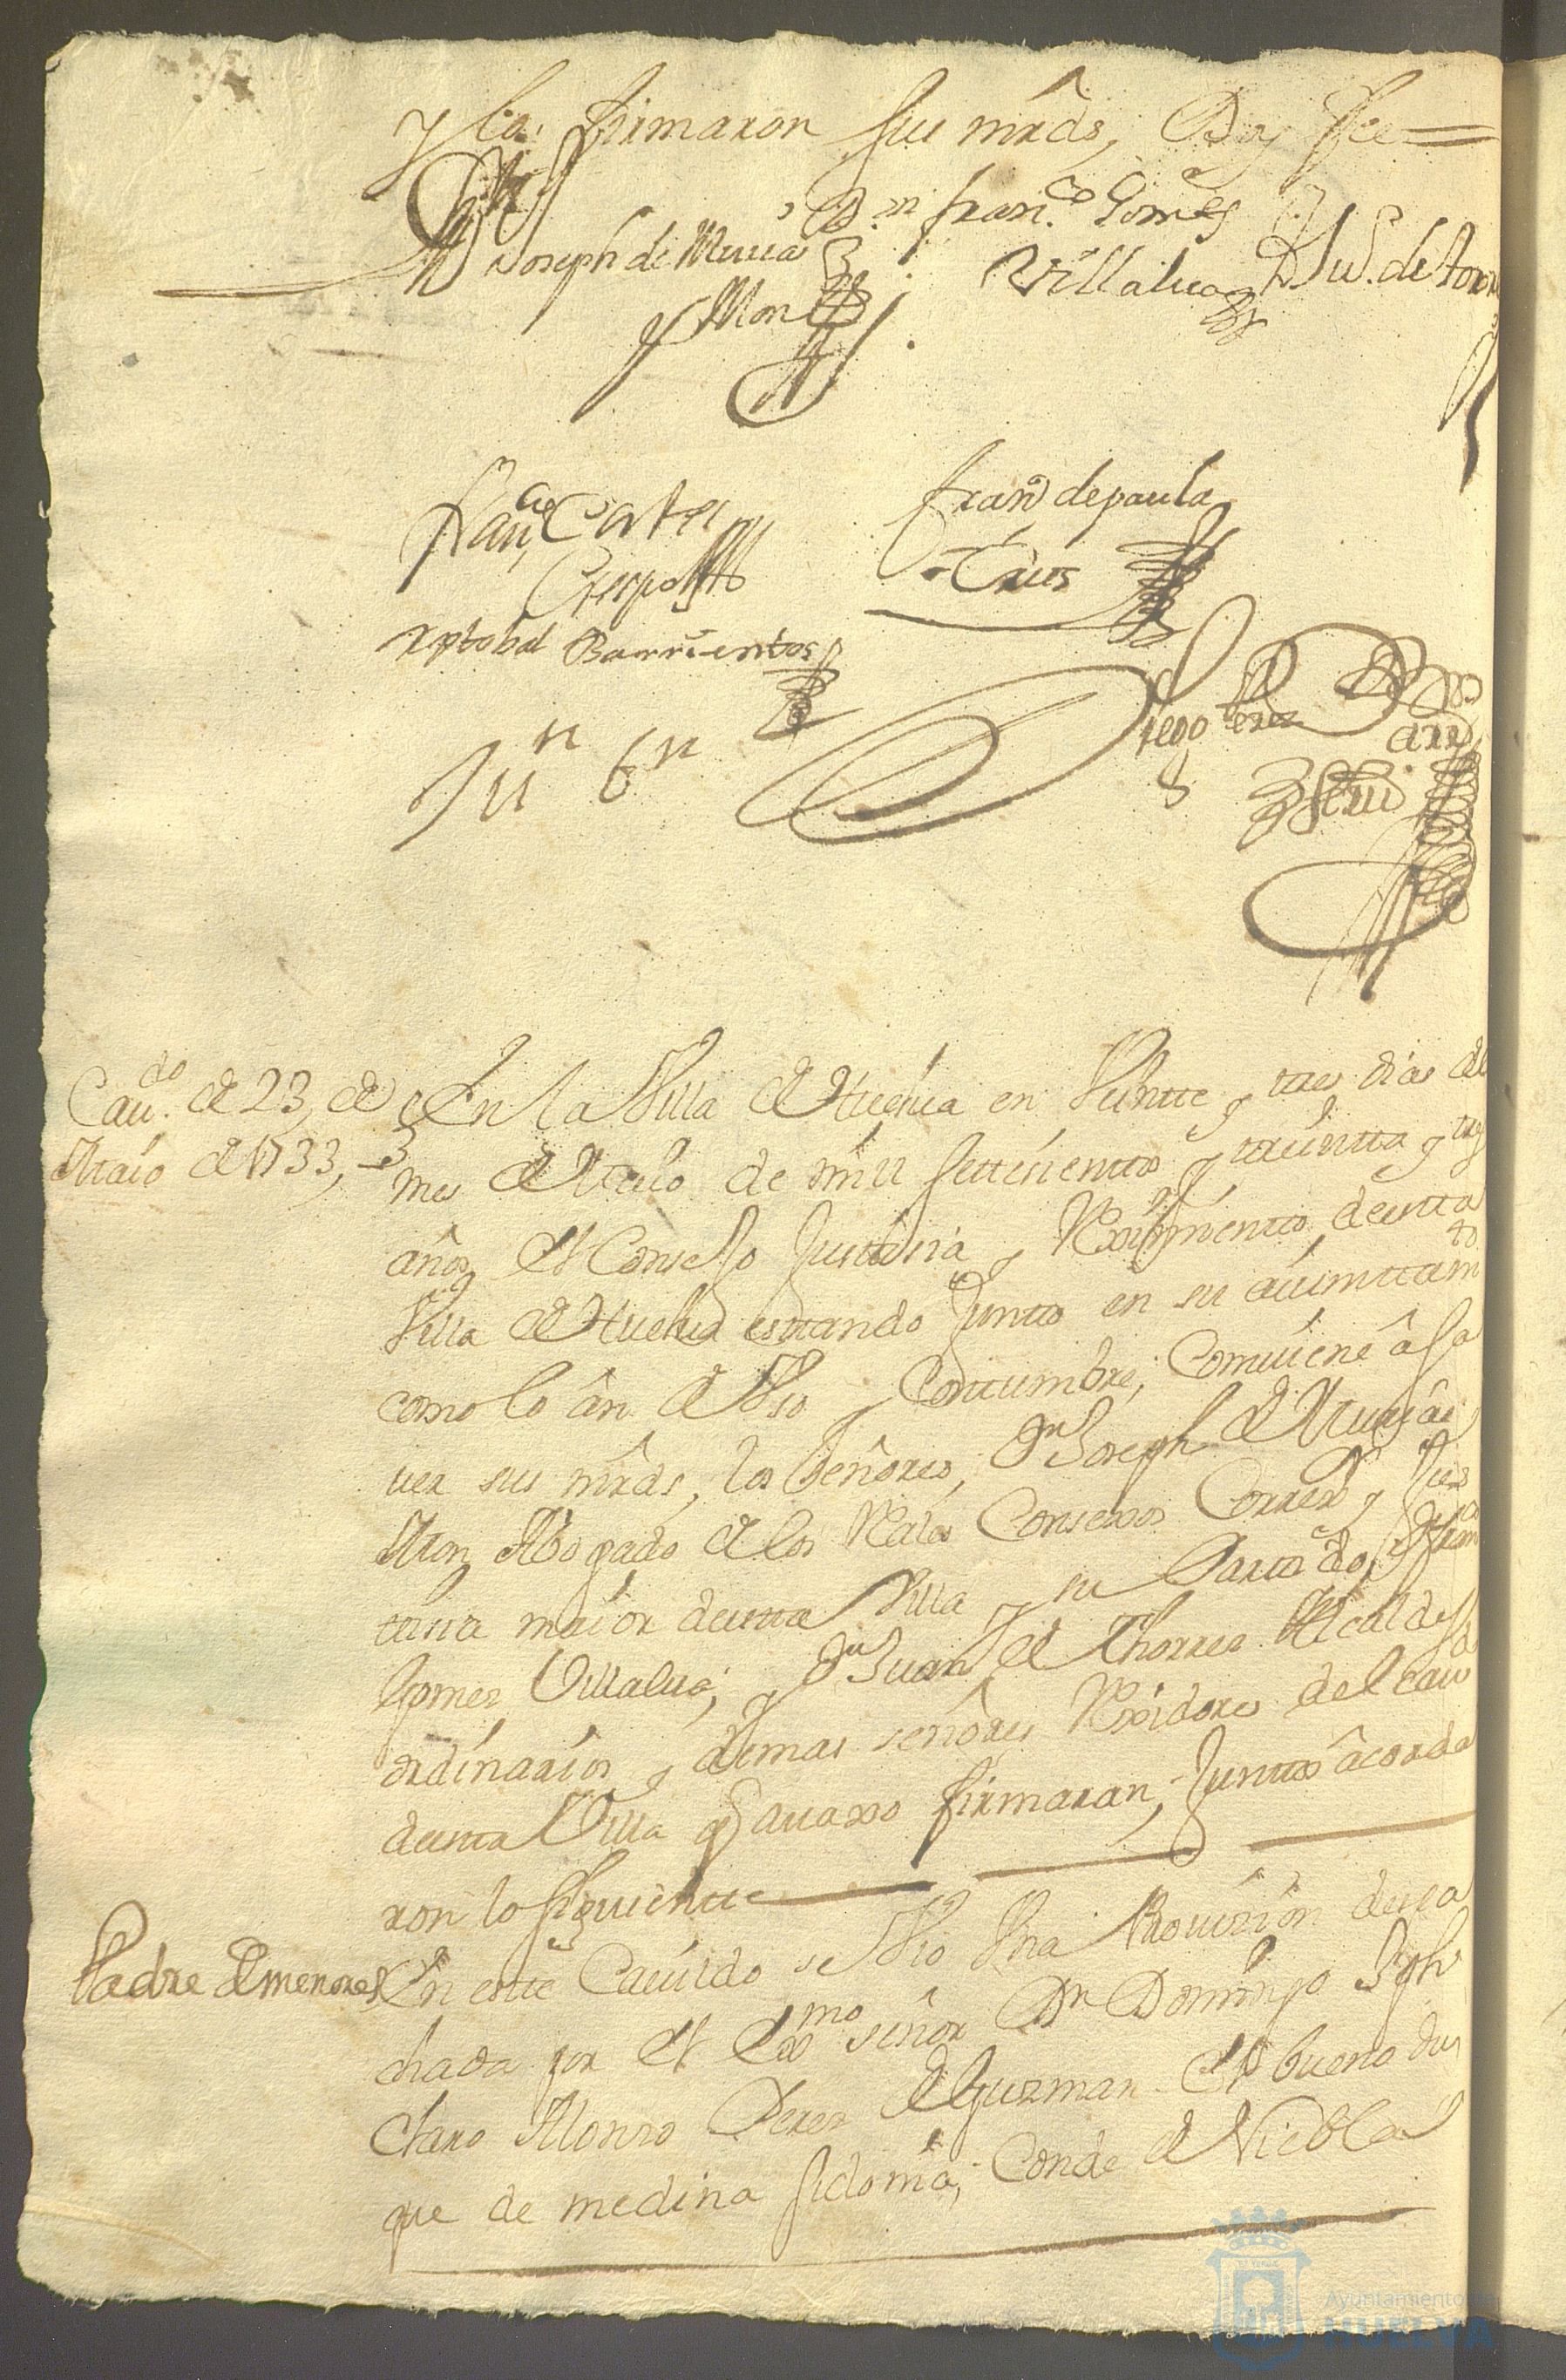 y lo firmaron sus mrds, Doy fee
Dn franco Gomes
Joseph de Murcia
Villalua
y Mon
Franco Cortes
Crespo
frano de paula
Trius
xptobal Barrientos
Diego Perez
Jun
Caudo de 23 de
Maio de 1733
En la Villa de Huelua en Veintte y tres dias del
mes de Maio de mill settesienttos y treintta y tres
años, el Consejo Justisia y Reximientto destta
Villa de Huelua esttando Junttos en su aiunttamto
como lo an de Vso y Costtumbre, Comuiene a sa
uer sus mrds, los señores, Dn Joseph de Murcia
Mon Abogado de los Rales Consexos Correxor y Jus
tisia maior destta Villa y su Parttido, Dn Franco
Gomes Villalua, y Dn Juan de Thorres Alcaldes
ordinarios y demas señores Rexidores del cauo
destta Villa q auaxo firmaran, Junttos acorda
ron lo siguientte
Padre de menores
En estte Cauildo se Vio Vna Prouision despa
chada por el Exmo señor Dn Domingo Jph
Claro Alonso Peres de Guzman el bueno du
que de medina sidonia, Conde de Niebla
Ayuntamiento de
HUELVA